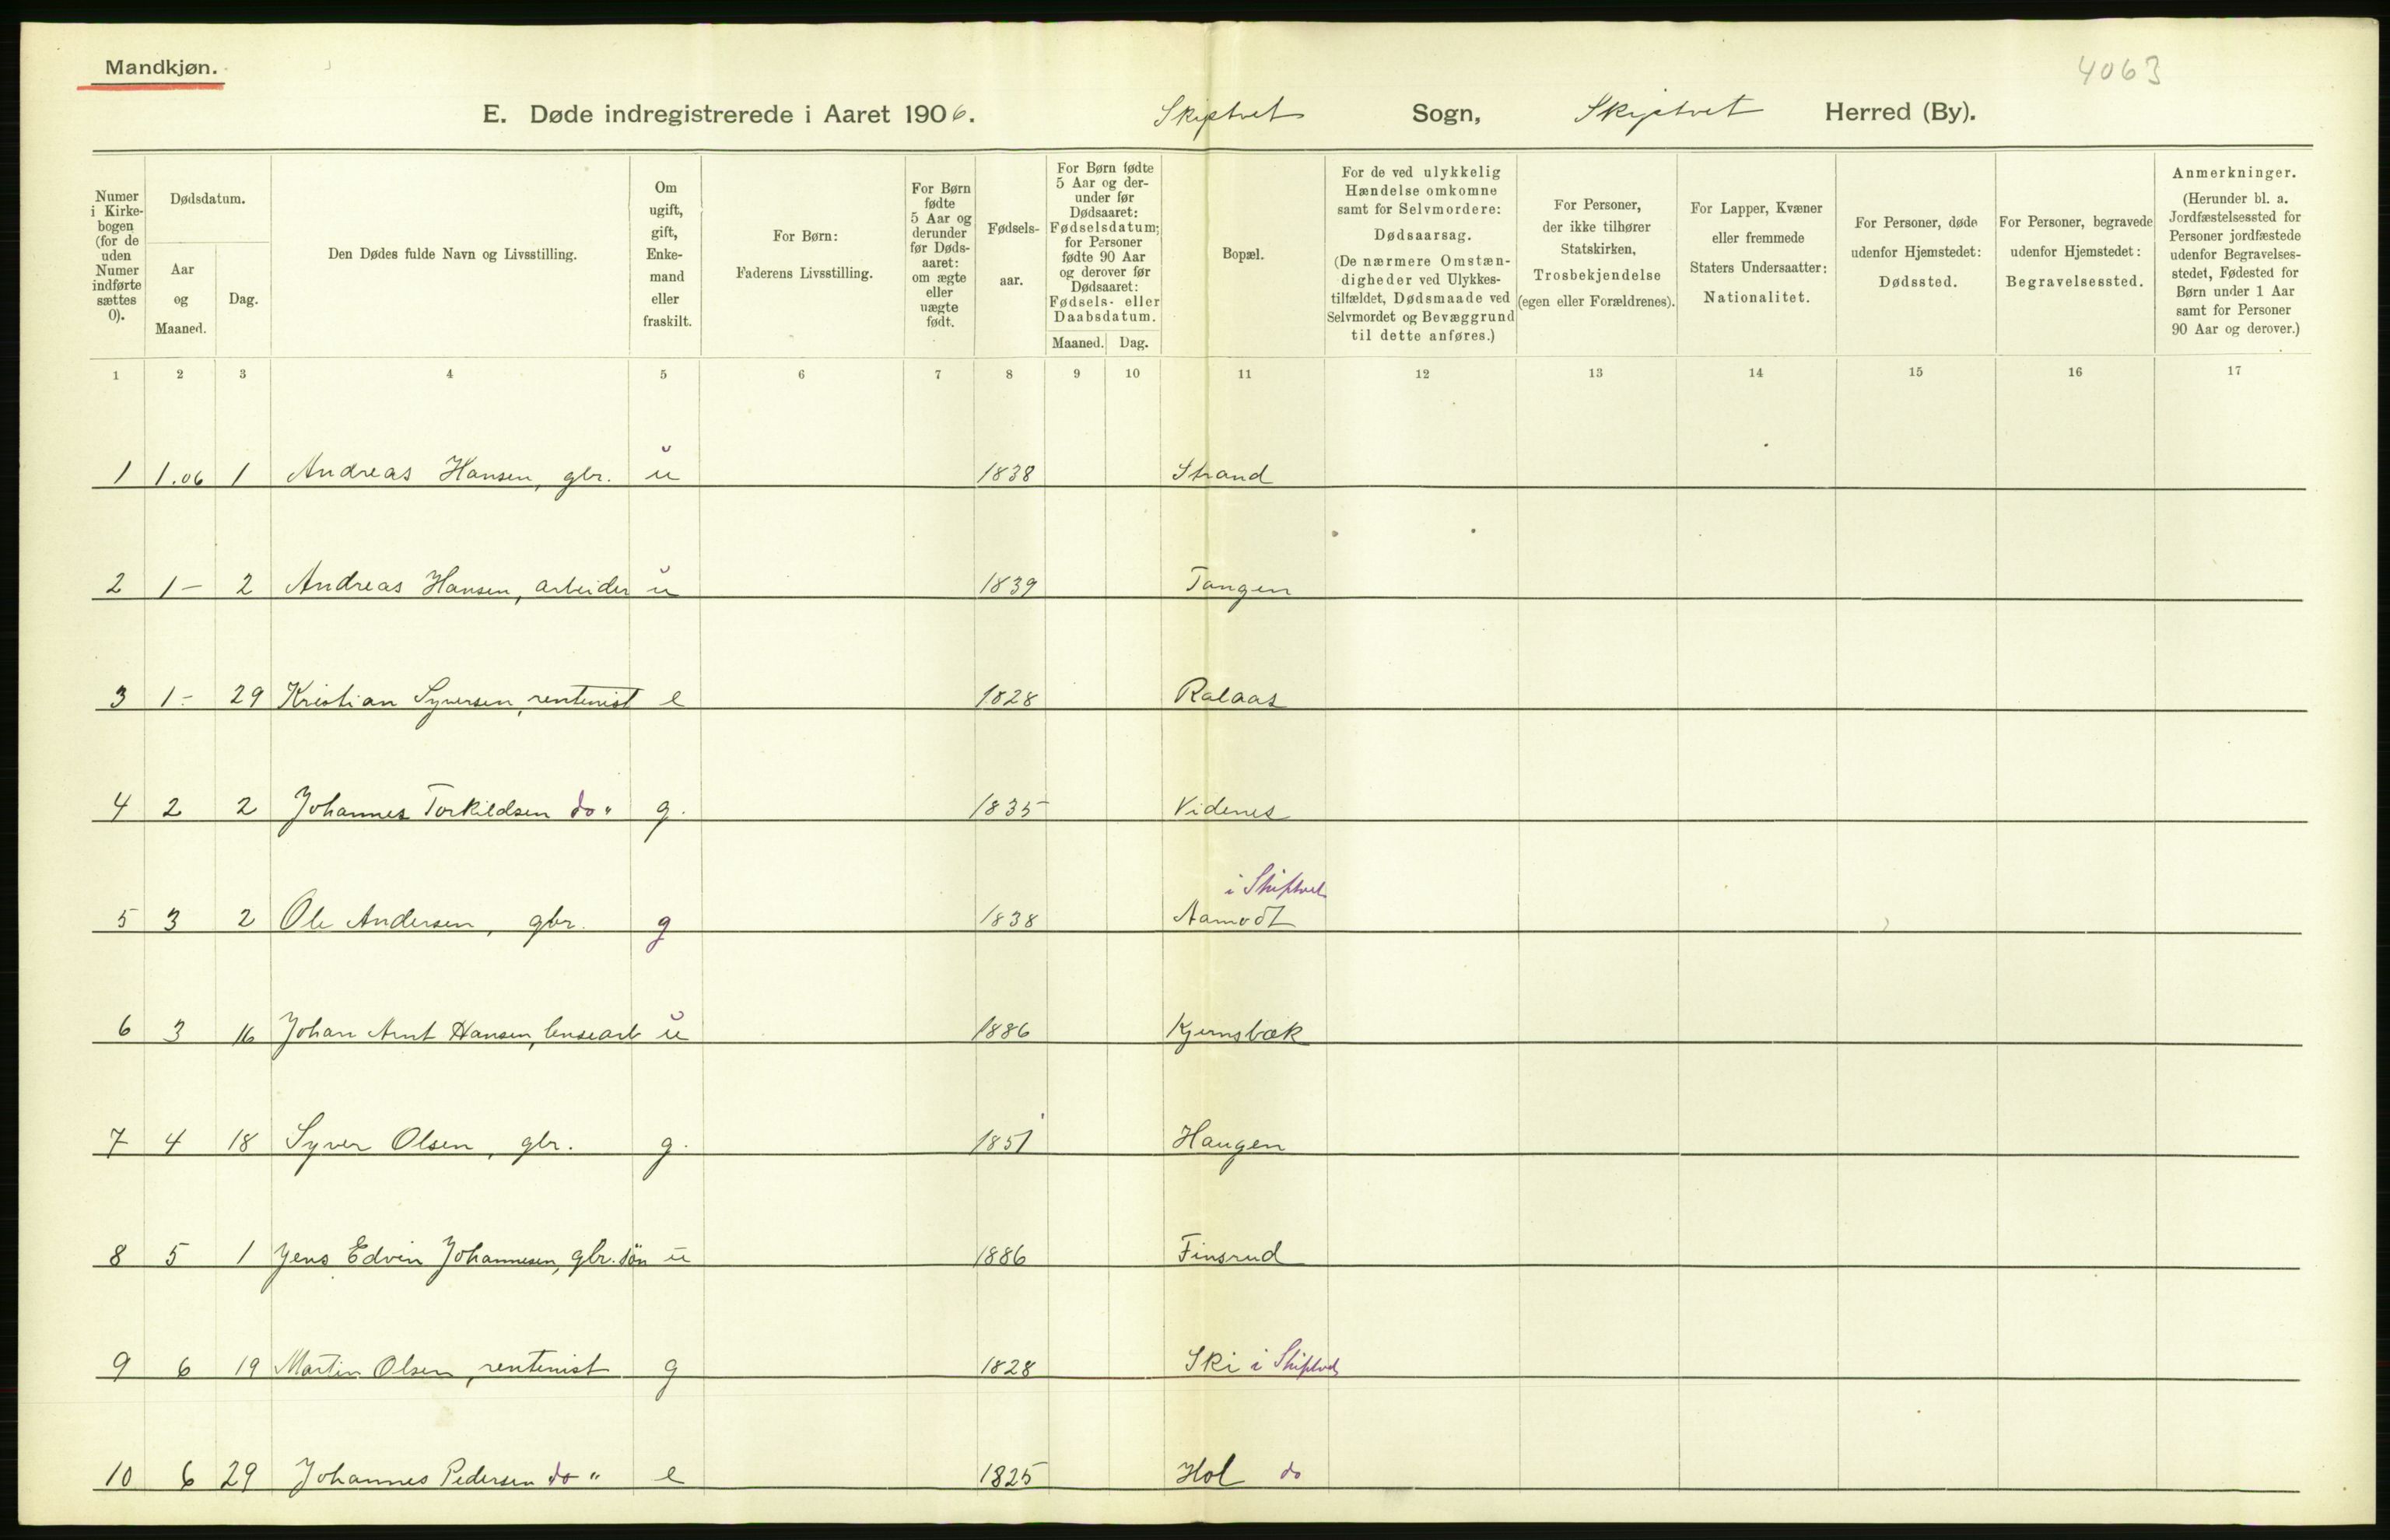 Mandkjøn.
4063
E. Døde indregistrerede i Aaret 1906. Skiptvet Sogn, Skiptvet Herred (By).
Numer i Kirkebogen (for de uden Numer indførte sættes 0).
Dødsdatum.
Aar og Maaned.
Dag.
Den Dødes fulde Navn og Livsstilling.
Om ugift, gift, Enkemand eller fraskilt.
For Børn: Faderens Livsstilling.
For Børn fødte 5 Aar og derunder før Dødsaaret: om ægte eller uægte født.
Fødselsaar.
For Børn fødte 5 Aar og derunder før Dødsaaret: Fødselsdatum; for Personer fødte 90 Aar og derover før Dødsaaret: Fødsels- eller Daabsdatum.
Maaned. Dag.
Bopæl.
For de ved ulykkelig Hændelse omkomne samt for Selvmordere: Dødsaarsag. (De nærmere Omstændigheder ved Ulykkestilfældet, Dødsmaade ved Selvmordet og Bevæggrund til dette anføres.)
For Personer, der ikke tilhører Statskirken, Trosbekjendelse (egen eller Forældrenes).
For Lapper, Kvæner eller fremmede Staters Undersaatter: Nationalitet.
For Personer, døde udenfor Hjemstedet: Dødssted.
For Personer, begravede udenfor Hjemstedet: Begravelsessted.
Anmerkninger. (Herunder bl. a. Jordfæstelsessted for Personer jordfæstede udenfor Begravelsesstedet, Fødested for Børn under 1 Aar samt for Personer 90 Aar og derover.)
1 2 3 4 5 6 7 8 9 10 11 12 13 14 15 16 17
1 1.06 1 Andreas Hansen, gbr. u 1838 Strand
2 1- 2 Andreas Hansen, arbeider u 1839 Tangen
3 1- 29 Kristian Syversen, rentenist e 1828 Ralaas
4 2 2 Johannes Torkildsen do " g. 1835 Videnes
i Skiptvet
5 3 2 Ole Andersen, gbr. g 1838 Aamodt
6 3 16 Johan Arnt Hansen, lensearb u 1886 Kjernsbæk
7 4 18 Syver Olsen, gbr. g. 1851 Haugen
8 5 1 Jens Edvin Johannesen, gbr. sön u 1886 Finsrud
9 6 19 Martin Olsen, rentenist g 1828 Ski i Skiptvet
10 6 29 Johannes Pedersen do " e 1825 Hol do